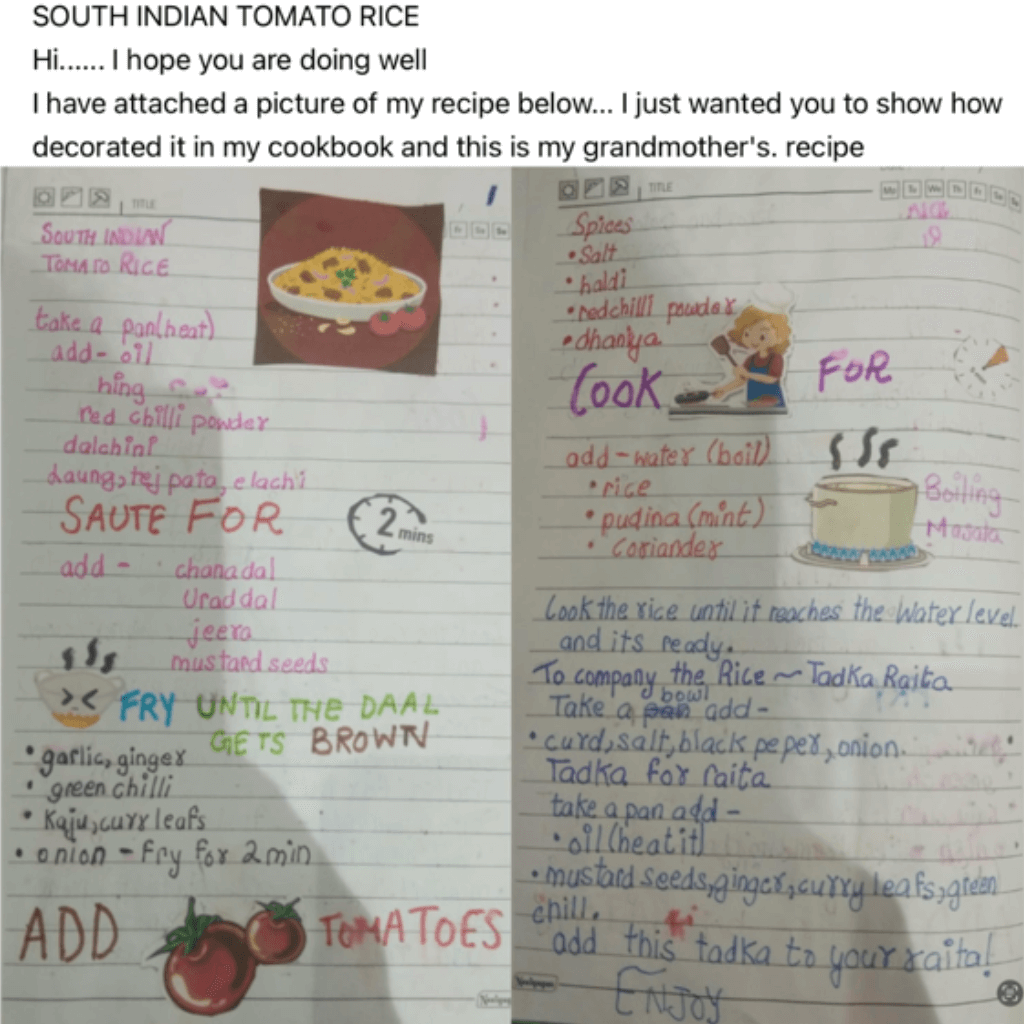 SOUTH INDIAN TOMATO RICE
Hi...... I hope you are doing well
I have attached a picture of my recipe below... I just wanted you to show how
decorated it in my cookbook and this is my grandmother's. recipe
TITLE
SOUTH INDIAN
TOMATO RICE
take a pan(heat)
add- oil
hing
red chilli powder
dalchini
Laung, tej pata, elachi
SAUTE FOR
2 mins
add - chana dal
Urad dal
jeera
mustard seeds
FRY UNTIL THE DAAL
GETS BROWN
• garlic, ginger
• green chilli
• Kaju, curr leafs
• onion - fry for 2 min
ADD TOMATOES
TITLE
Mo Tu We Th Fr Sa Su
Spices
• Salt
• haldi
• redchilli powder
• dhaniya
COOK FOR
add - water (boil)
• rice
• pudina (mint)
• Coriander
Boiling
Masala
Cook the rice until it reaches the water level
and its ready.
To company the Rice ~ Tadka Raita
Take a pan bowl add-
• curd, salt, black peper, onion.
Tadka for raita
take a pan add -
• oil (heat it)
• mustard seeds, ginger, curry leafs, green
chill.
add this tadka to your raita!
ENJOY